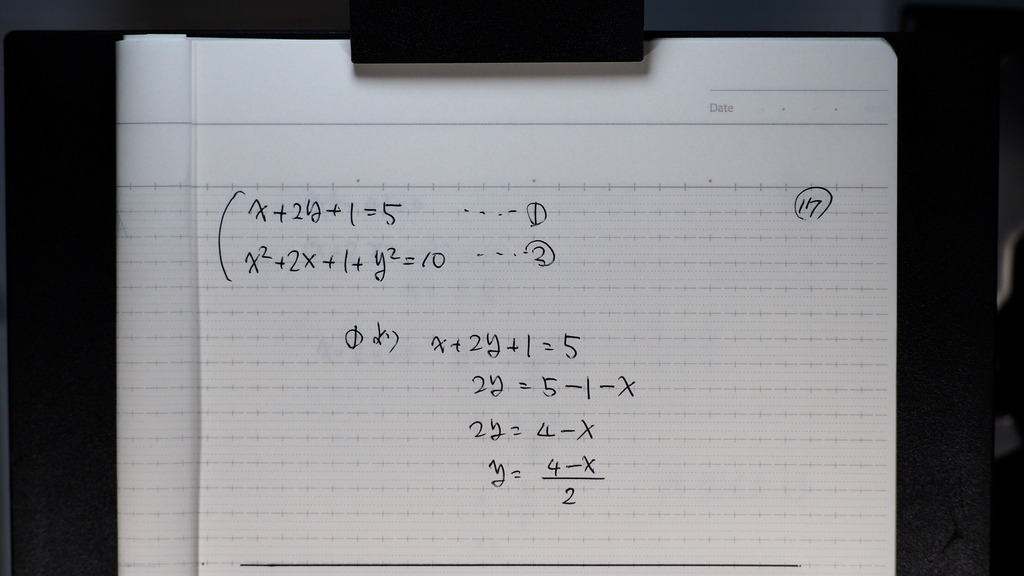 Date
x+2y+1=5 ····①
x²+2x+1+y²=10 ····②
⑰
①より x+2y+1=5
2y=5-1-x
2y=4-x
y=\frac{4-x}{2}